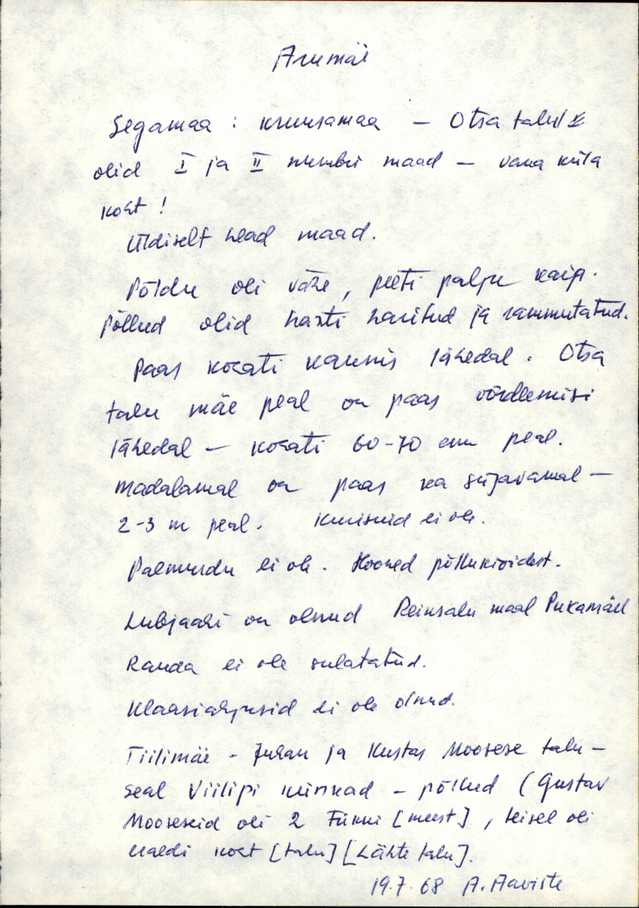 Arumäe
Segamaa : kruusamaa — Otsa talul
olid I ja II numbri maad — vana küla
koht!
Üldiselt head maad.
Põldu oli vähe, peeti palju karja.
Põllud olid hästi haritud ja rammutatud.
Paas kohati kaunis lähedal. Otsa
talu mäe peal on paas võrdlemisi
lähedal — kohati 60-70 cm peal.
Madalamal on paas ka sügavamal —
2-3 m peal. Kurisuid ei ole.
Paemurdu ei ole. Hooned põllukividest.
Lubjaahi on olnud Reinsalu maal Pukamäel
Rauda ei ole sulatatud.
Klaasiahjusid ei ole olnud.
Tiilimäe - Juhan ja Kustas Moorese talu —
seal Viilipi künkad - põllud (Gustav
Mooreseid oli 2 [meest], teisel oli
koht [talu] [Lähte talu].
19.7.68 A. Aaviste